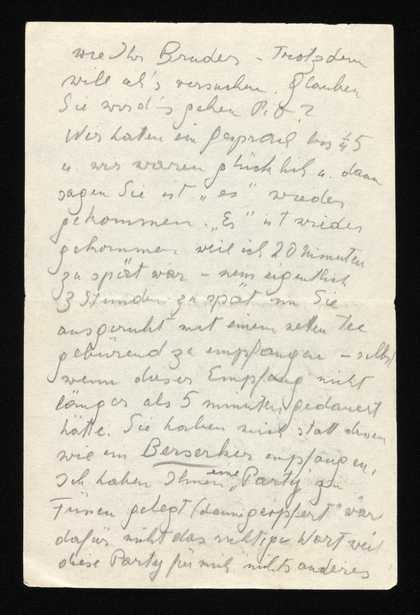 wie Ihr Bruder – Trotzdem
will ich's versuchen. Glauben
Sie wird's gehen P. ?
Wir hatten ein Gespräch bis 5
u. wir waren glücklich u. dann
sagen Sie ist „es" wieder
gekommen. „Es" ist wieder
gekommen weil ich 20 Minuten
zu spät war – nein eigentlich
3 Stunden zu spät um Sie
ausgeruht mit einem netten Tee
gebürend zu empfangen – selbst
wenn dieser Empfang nicht
länger als 5 Minuten gedauert
hätte. Sie haben mich statt dessen
wie ein Berserker empfangen,
Ich habe Ihnen eine Party zu
Füssen gelegt (denn geopfert" wär
dafür nicht das richtige Wort weil
diese Party für mich nichts anderes